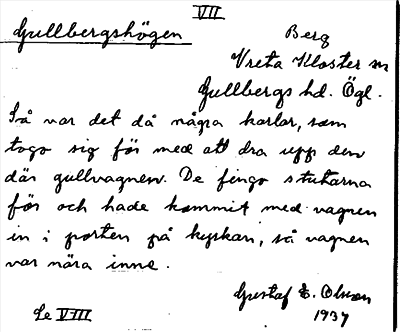 VII
Gullbergshögen
Berg
Vreta Kloster sn
Gullbergs hd. Ögl.
Så var det då några karlar, som
togo sig för med att dra upp den
där gullvagnen. De fingo stutarna
för och hade kommit med vagnen
in i porten på kyrkan, så vagnen
var nära inne.
Gustaf E. Olsson
1937
Se VIII